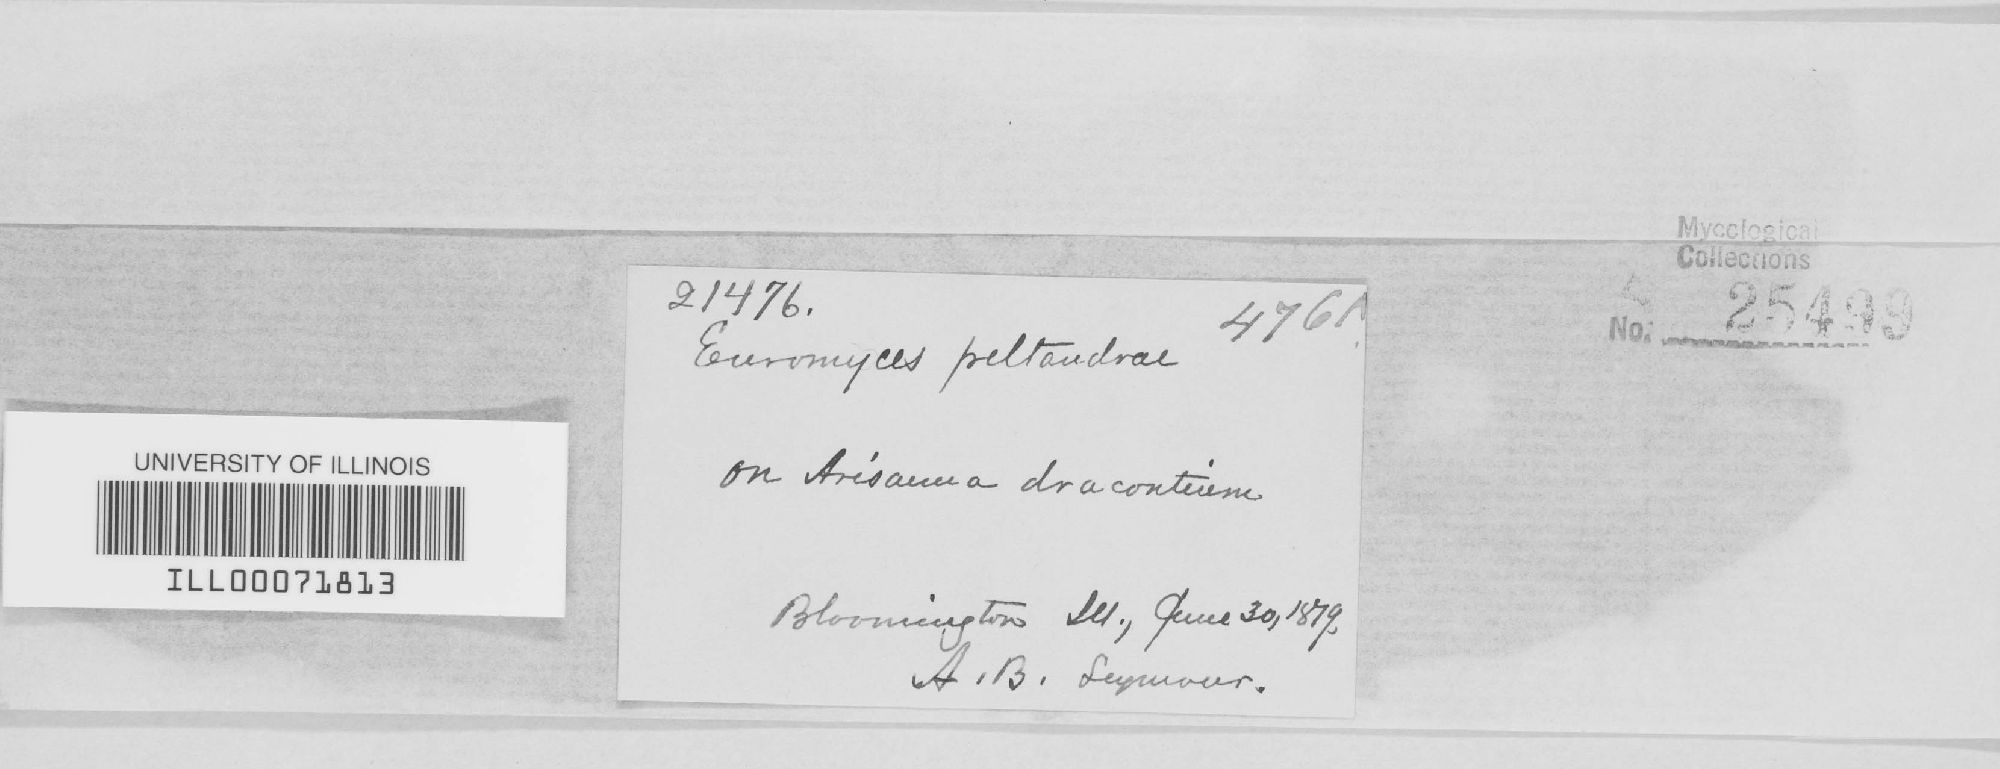 21476.
476A
Euromyces peltandrae
on Arisaema dracontium
Bloomington Ill., June 30, 1879.
A. B. Seymour.
UNIVERSITY OF ILLINOIS
ILL00071813
Mycological
Collections
No. 25499